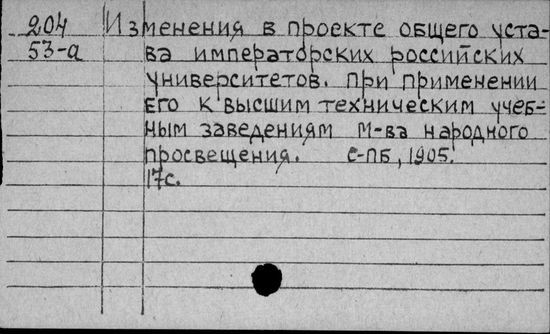 204 Изменения в проекте общего уста-
53-а ва императорских российских
университетов. При применении
его к высшим техническим учеб-
ным заведениям М-ва народного
просвещения. С-ПБ, 1905.
17с.